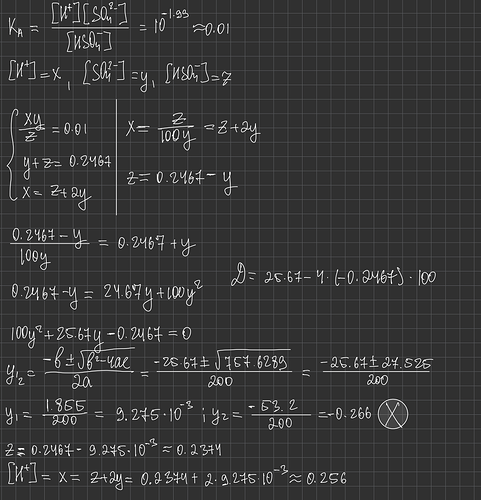 K_A = [H⁺][SO₄²⁻] / [HSO₄⁻] = 10^-1.99 ≈ 0.01
[H⁺]=x, [SO₄²⁻]=y, [HSO₄⁻]=z
{ xy/z = 0.01 | x = z/100y = z+2y
y+z = 0.2467 | z = 0.2467 - y
x = z+2y
0.2467 - y / 100y = 0.2467 + y
D = 25.67 - 4·(-0.2467)·100
0.2467 - y = 24.67y + 100y²
100y² + 25.67y - 0.2467 = 0
y₁,₂ = -b ± √b² - 4ac / 2a = -25.67 ± √757.6289 / 200 = -25.67 ± 27.525 / 200
y₁ = 1.855 / 200 = 9.275·10⁻³ ; y₂ = -53.2 / 200 = -0.266 ⓧ
z = 0.2467 - 9.275·10⁻³ ≈ 0.2374
[H⁺] = x = z+2y = 0.2374 + 2·9.275·10⁻³ ≈ 0.256